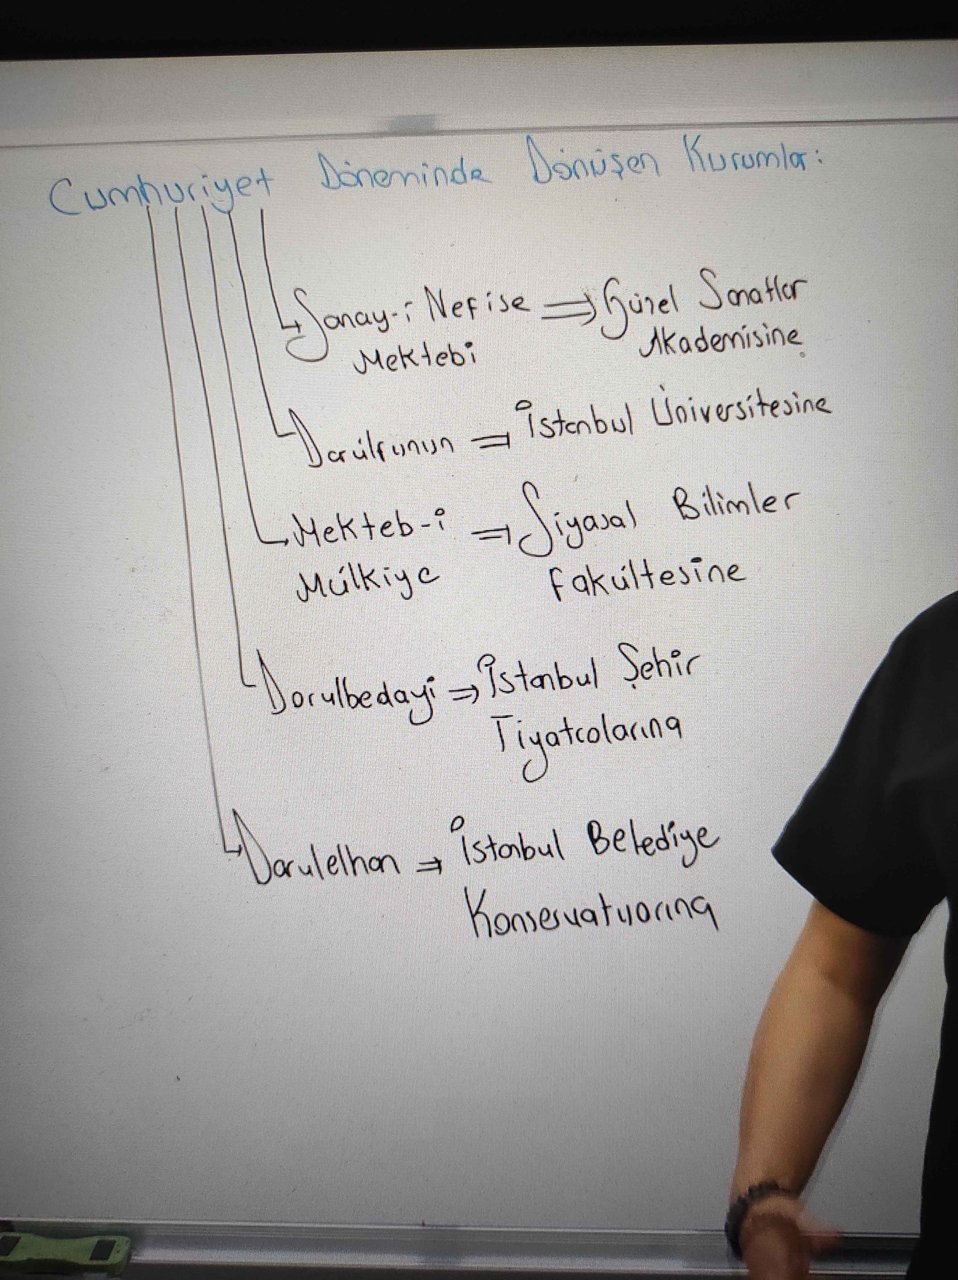 Cumhuriyet Döneminde Dönüşen Kurumlar:
Sanay-i Nefise ⇒ Güzel Sanatlar
Mektebi Akademisine
Darülfunun ⇒ İstanbul Üniversitesine
Mekteb-i ⇒ Siyasal Bilimler
Mülkiye Fakültesine
Darulbedayi ⇒ İstanbul Şehir
Tiyatrolarına
Darulelhan ⇒ İstanbul Belediye
Konservatuvarına